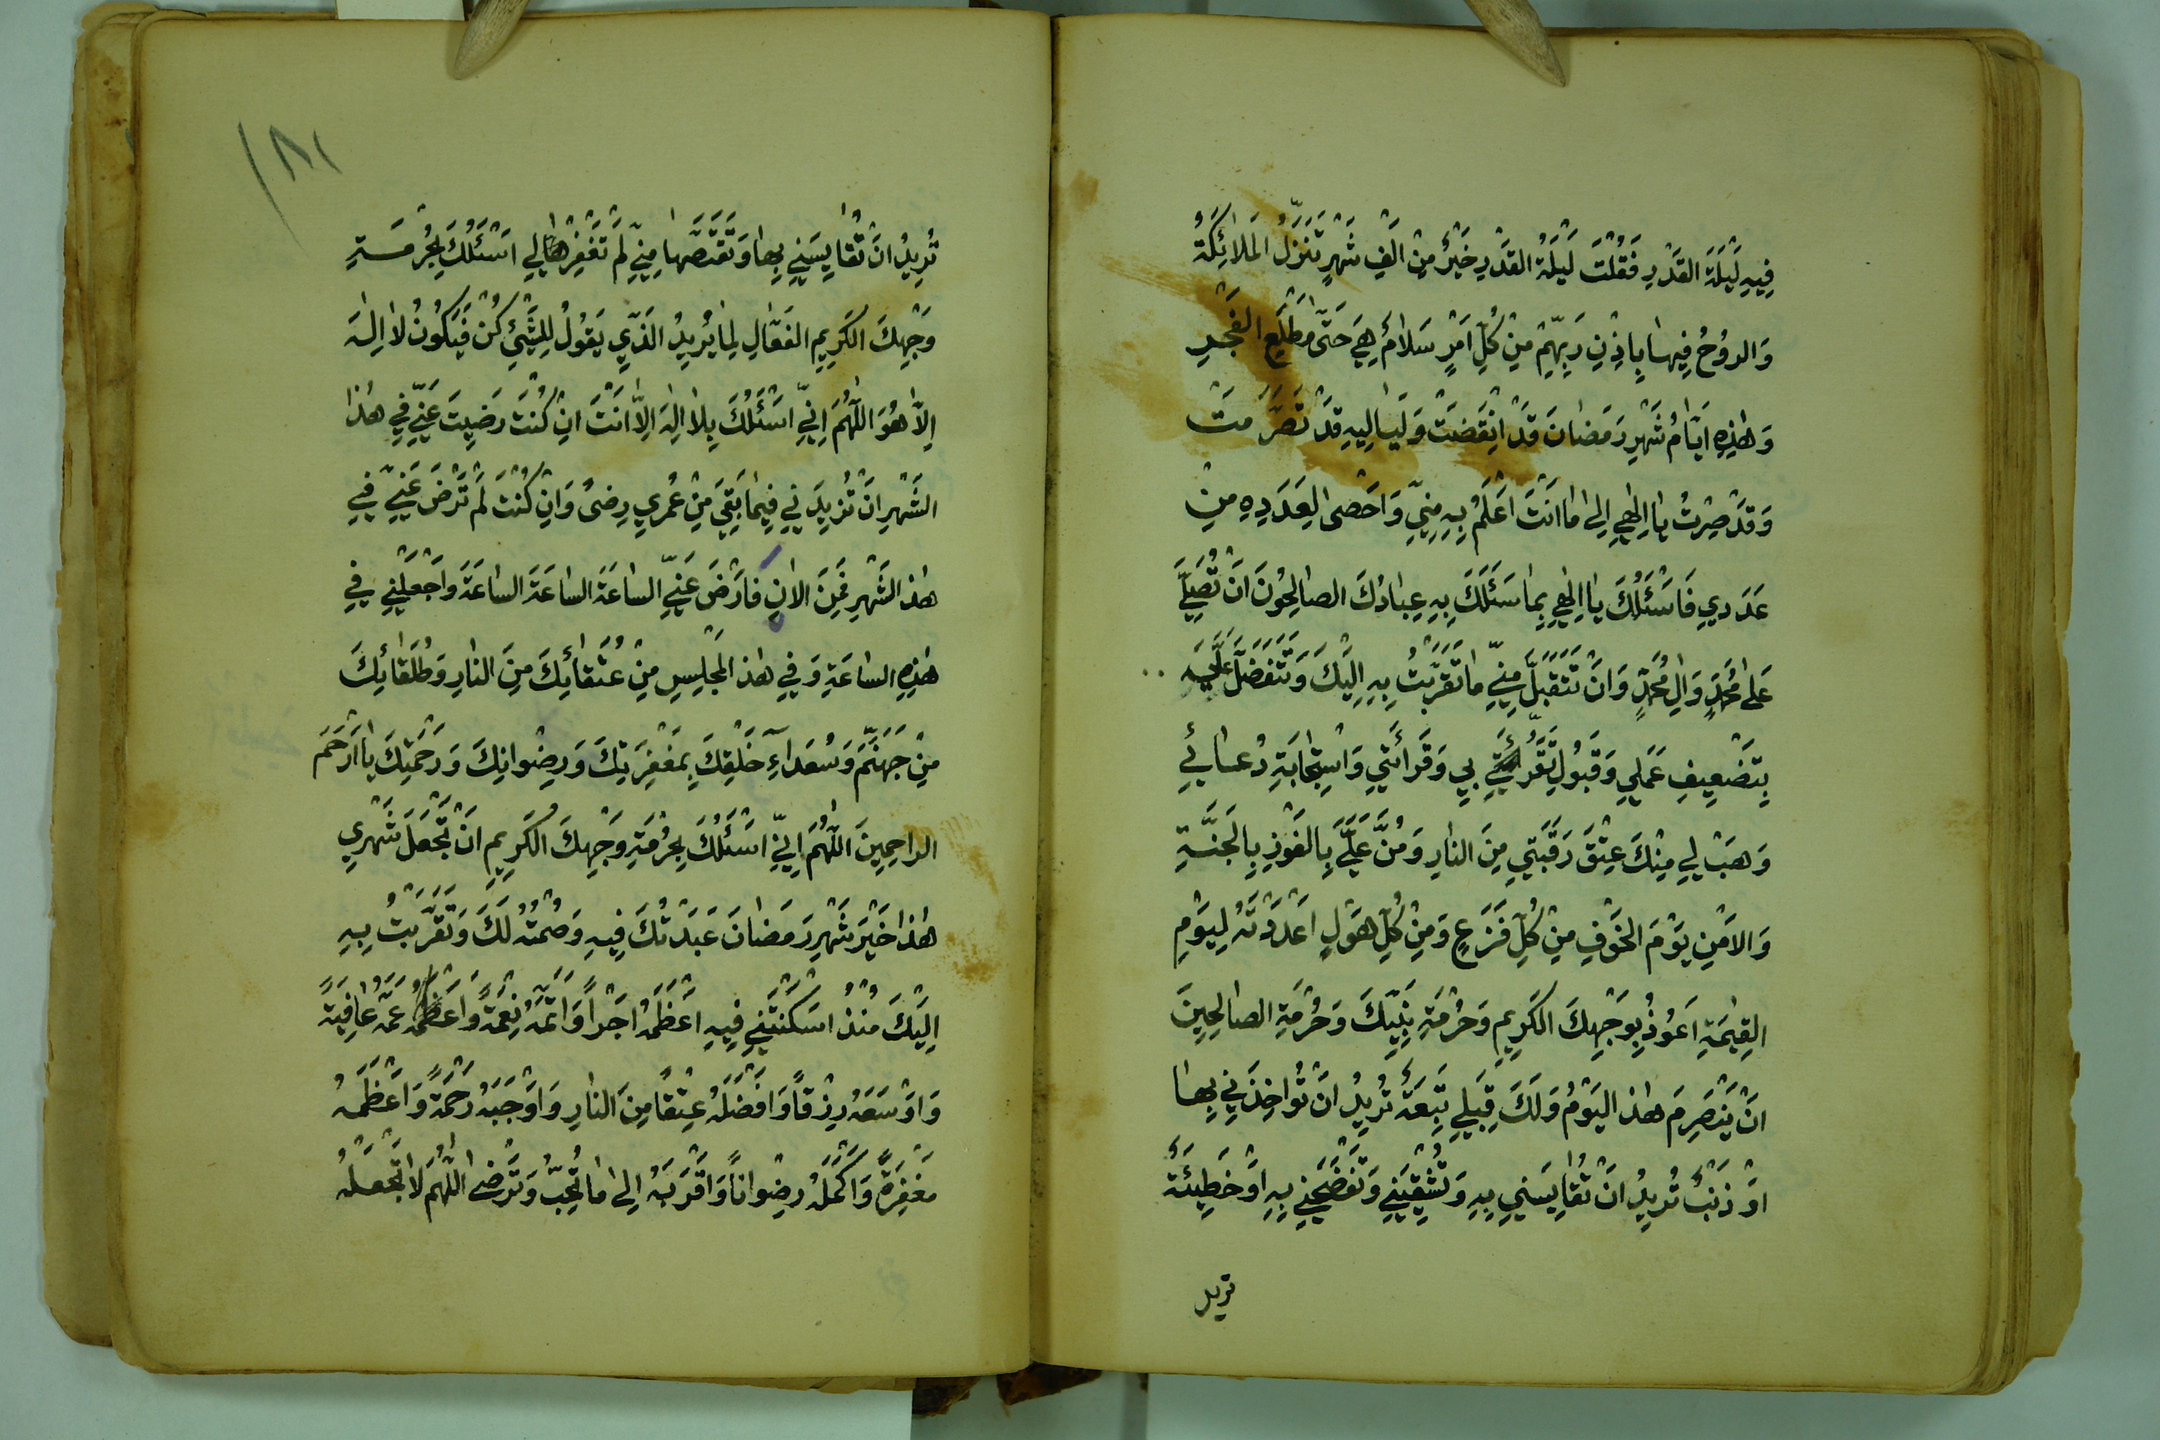 فِيهِ لَيْلَةَ القَدْرِ فَقُلْتَ لَيْلَةُ القَدْرِ خَيْرٌ مِنْ اَلْفِ شَهْرٍ تَنَزَّلُ المَلائِكَةُ
وَالروُحُ فِيهٰا بِاِذْنِ رَبِّهِمْ مِنْ كُلِّ اَمْرٍ سَلامٌ هِيَ حَتّىٰ مَطْلَعِ الفَجْرِ
وَهٰذِهِ اَيّٰامُ شَهْرِ رَمَضٰانَ قَدْ انْقَضَتْ وَلَيٰالِيهِ قَدْ تَصَرَّمَتْ
وَقَدْ صِرْتُ يٰا اِلٰهِي اِلىٰ مٰا اَنْتَ اَعْلَمُ بِهِ مِنِّي وَاَحْصىٰ لِعَدَدِهِ مِنْ
عَدَدِي فَاَسْئَلُكَ يٰا اِلٰهِي بِمٰا سَئَلَكَ بِهِ عِبٰادُكَ الصٰالِحُونَ اَنْ تُصَلِّيَ
عَلىٰ مُحَمَّدٍ وَاٰلِ مُحَمَّدٍ وَاَنْ تَتَقَبَّلَ مِنِّي مٰا تَقَرَّبْتُ بِهِ اِلَيْكَ وَتَتَفَضَّلَ عَلَيَّ
بِتَضْعِيفِ عَمَلِي وَقَبُولِ تَقَرُّبِي وَقَرٰائَتِي وَاسْتِجٰابَةِ دُعٰائِي
وَهَبْ لِي مِنْكَ عِتْقَ رَقَبَتِي مِنَ النٰارِ وَمُنَّ عَلَيَّ بِالفَوْزِ بِالجَنَّةِ
وَالاَمْنِ يَوْمَ الخَوْفِ مِنْ كُلِّ فَزَعٍ وَمِنْ كُلِّ هَوْلٍ اَعْدَدْتَهُ لِيَوْمِ
القِيٰمَةِ اَعُوذُ بِوَجْهِكَ الكَرِيمِ وَحُرْمَةِ نَبِيِّكَ وَحُرْمَةِ الصٰالِحِينَ
اَنْ يَنْصَرِمَ هٰذا اليَوْمُ وَلَكَ قِبَلِي تَبِعَةٌ تُرِيدُ اَنْ تُؤاخِذَنِي بِهٰا
اَوْ ذَنْبٌ تُرِيدُ اَنْ تُقٰايِسَنِي بِهِ وَتُشْقِيَنِي وَتَفْضَحَنِي بِهِ اَوْ خَطِيئَةٌ
تريد
١٨١
تُرِيدُ اَنْ تُقٰايِسَنِي بِهٰا وَتَقْتَصَّهٰا مِنِّي لَمْ تَغْفِرْهٰا لِي اَسْئَلُكَ بِحُرْمَةِ
وَجْهِكَ الكَرِيمِ الفَعّٰالِ لِمٰا يُرِيدُ الَّذِي يَقُولُ لِلشَّيْئِ كُنْ فَيَكُونُ لا اِلٰهَ
اِلّا هُوَ اللّٰهُمَّ اِنِّي اَسْئَلُكَ بِلا اِلٰهَ اِلّا اَنْتَ اِنْ كُنْتَ رَضِيتَ عَنِّي فِي هٰذا
الشَّهْرِ اَنْ تُزِيدَ نِي فِيمٰا بَقِيَ مِنْ عُمُرِي رِضىً وَاِنْ كُنْتَ لَمْ تَرْضَ عَنِّي فِي
هٰذا الشَّهْرِ فَمِنَ الاٰنِ فَارْضَ عَنِّي الساعَةَ الساعَةَ الساعَةَ وَاجْعَلْنِي فِي
هٰذِهِ الساعَةِ وَفِي هٰذا المَجْلِسِ مِنْ عُتَقٰائِكَ مِنَ النٰارِ وَطُلَقٰائِكَ
مِنْ جَهَنَّمَ وَسُعَدٰاءِ خَلْقِكَ بِمَغْفِرَتِكَ وَرِضْوانِكَ وَرَحْمَتِكَ يٰا اَرْحَمَ
الراحِمِينَ اللّٰهُمَّ اِنِّي اَسْئَلُكَ بِحُرْمَةِ وَجْهِكَ الكَرِيمِ اَنْ تَجْعَلَ شَهْرِي
هٰذا خَيْرَ شَهْرِ رَمَضٰانَ عَبَدْتُكَ فِيهِ وَصُمْتُهُ لَكَ وَتَقَرَّبْتُ بِهِ
اِلَيْكَ مُنْذُ اَسْكَنْتَنِي فِيهِ اَعْظَمَهُ اَجْراً وَاَتَمَّهُ نِعْمَةً وَاَعَمَّهُ عٰافِيَةً
وَاَوْسَعَهُ رِزْقاً وَاَفْضَلَهُ عِتْقاً مِنَ النٰارِ وَاَوْجَبَهُ رَحْمَةً وَاَعْظَمَهُ
مَغْفِرَةً وَاَكْمَلَهُ رِضْواناً وَاَقْرَبَهُ اِلىٰ مٰا تُحِبُّ وَتَرْضىٰ اللّٰهُمَّ لا تَجْعَلْهُ